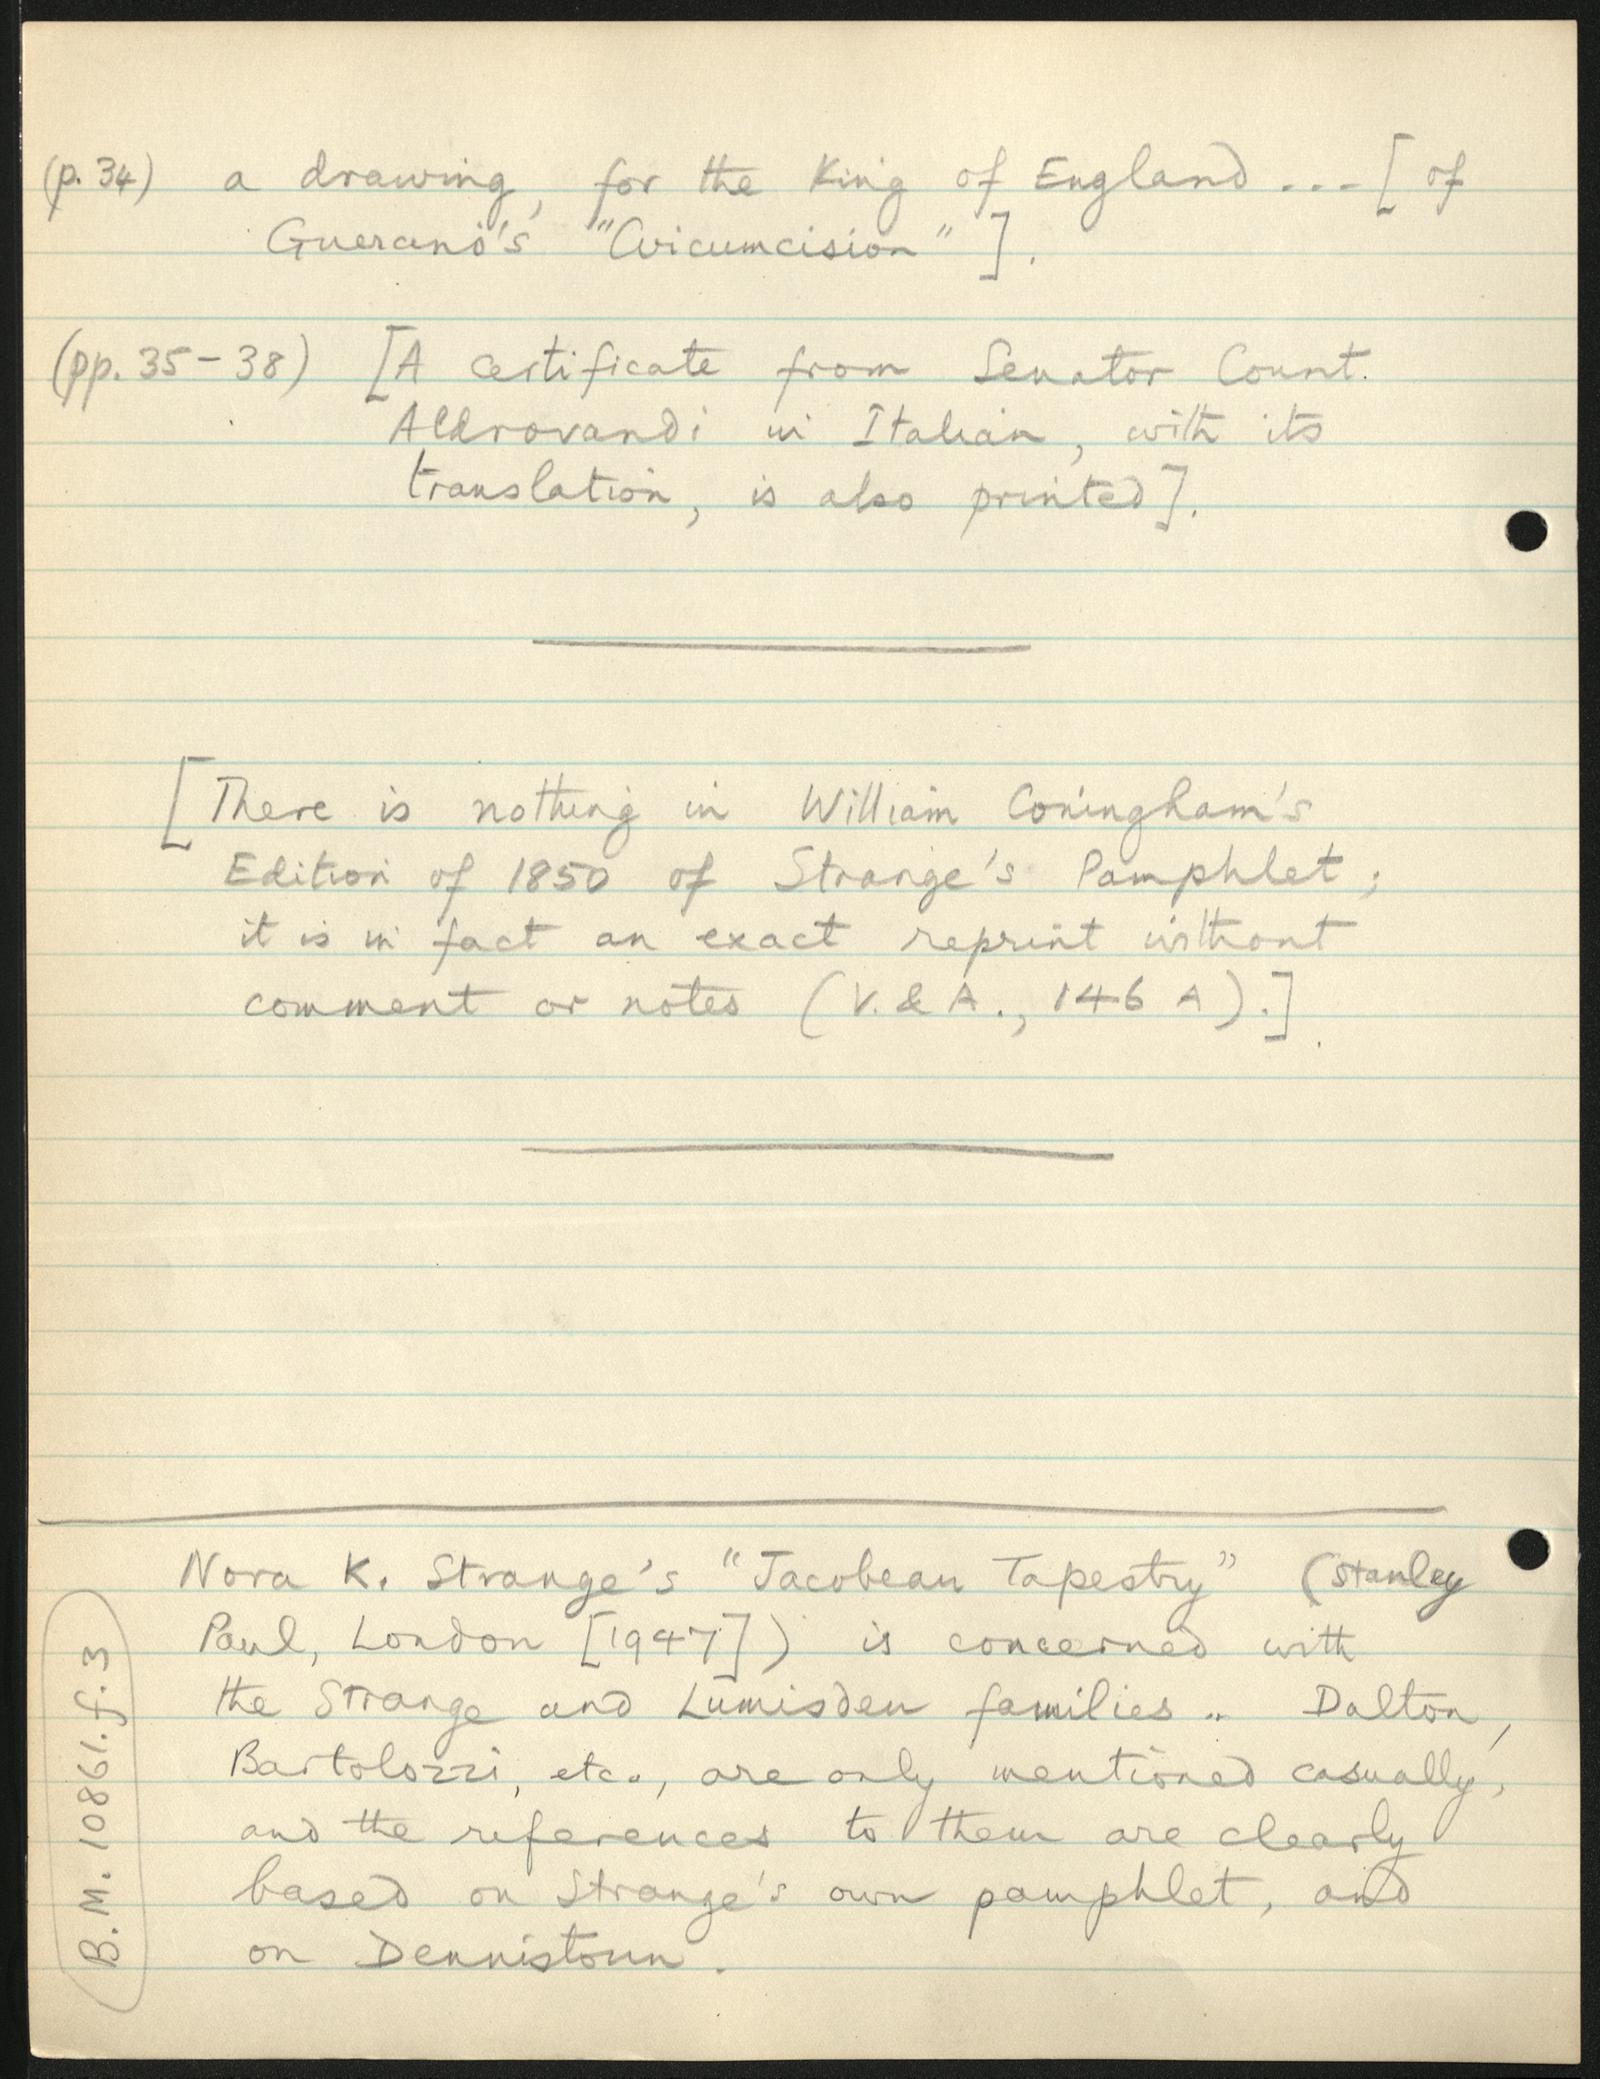 (p. 34) a drawing, for the King of England ... [of
Guercino's "Circumcision"].
(pp. 35-38) [A certificate from Senator Count
Aldrovandi in Italian, with its
translation, is also printed].
[There is nothing in William Coningham's
Edition of 1850 of Strange's Pamphlet;
it is in fact an exact reprint without
comment or notes (V. & A., 146 A).]
Nora K. Strange's "Jacobean Tapestry" (Stanley
Paul, London [1947]) is concerned with
the Strange and Lumisden families.. Dalton,
Bartolozzi, etc., are only mentioned casually,
and the references to them are clearly
based on Strange's own pamphlet, and
on Dennistoun.
B.M. 10861.f.3